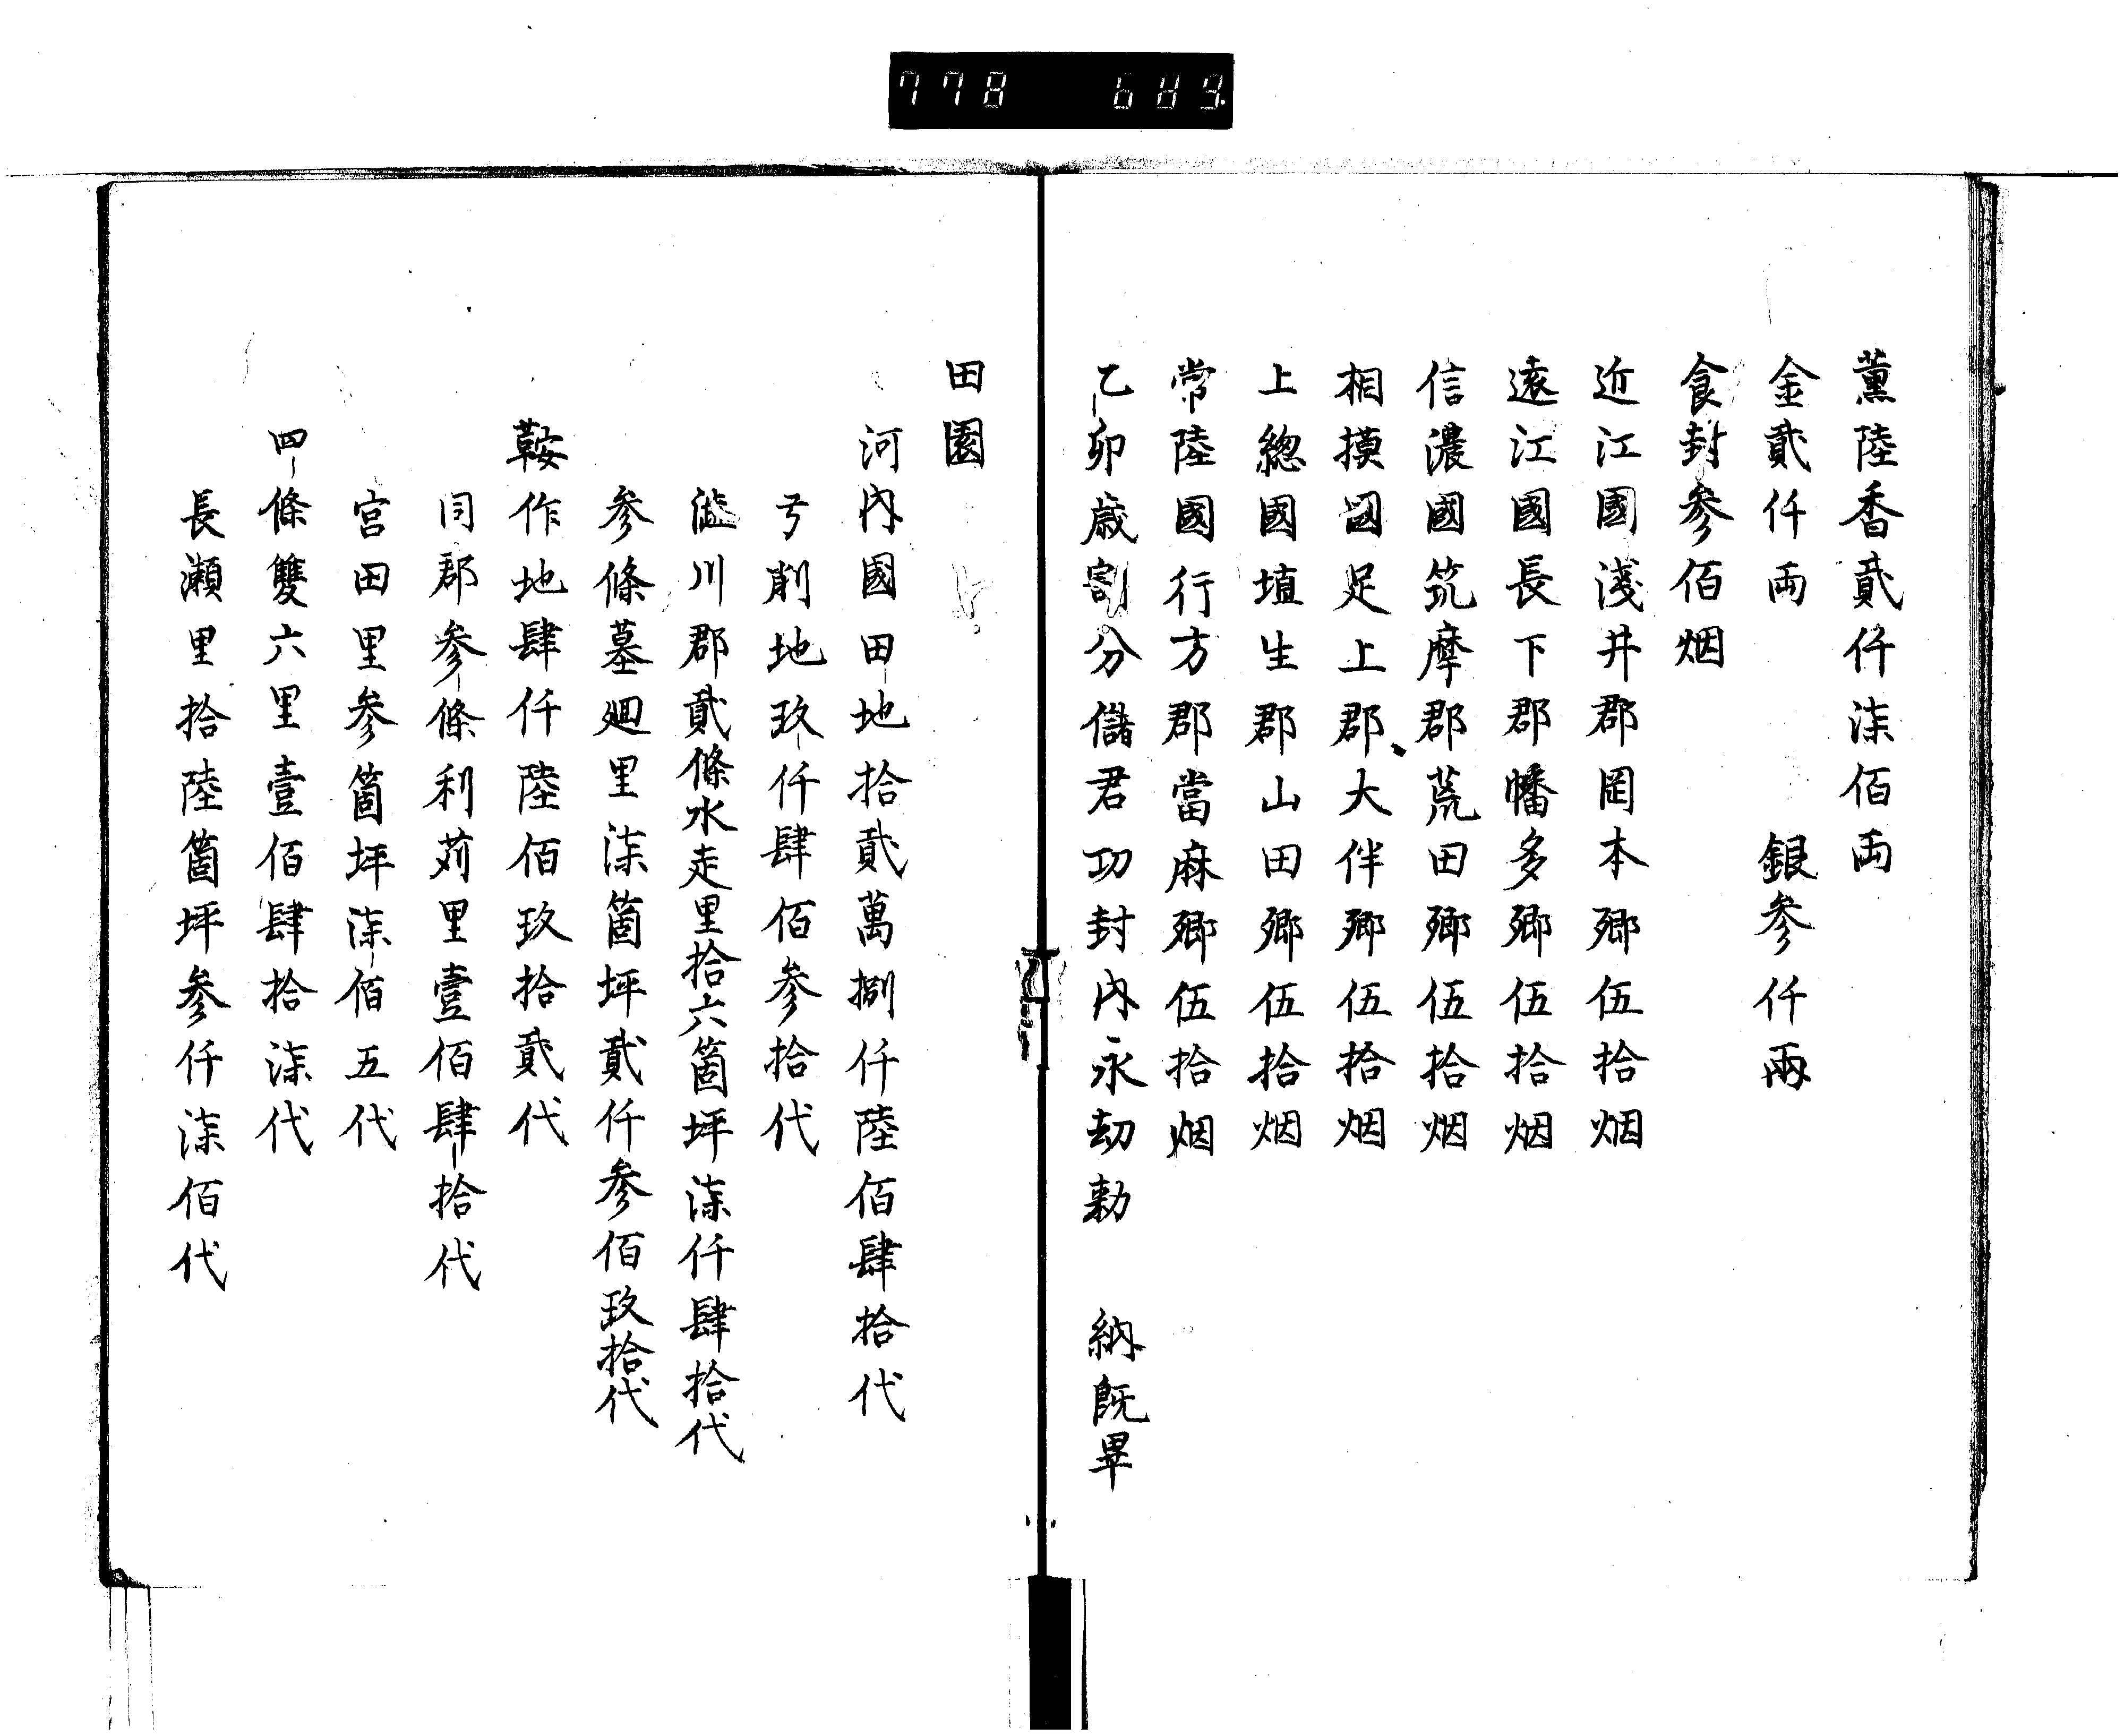 778 689
薫陸香貳仟柒佰両
金貳仟両 銀参仟兩
食封参佰烟
近江國淺井郡岡本郷伍拾烟
遠江國長下郡幡多郷伍拾烟
信濃國筑摩郡荒田郷伍拾烟
相摸國足上郡大伴郷伍拾烟
上総國埴生郡山田郷伍拾烟
常陸國行方郡當麻郷伍拾烟
乙卯歳割分儲君功封内永劫勅 納既畢
田園
河内國田地拾貳萬捌仟陸佰肆拾代
弓削地玖仟肆佰参拾代
澁川郡貳條水走里拾六箇坪柒仟肆拾代
参條墓廻里柒箇坪貳仟参佰玖拾代
鞍作地肆仟陸佰玖拾貳代
同郡参條利苅里壹佰肆拾代
宮田里参箇坪柒佰五代
四條雙六里壹佰肆拾柒代
長瀬里拾陸箇坪参仟柒佰代